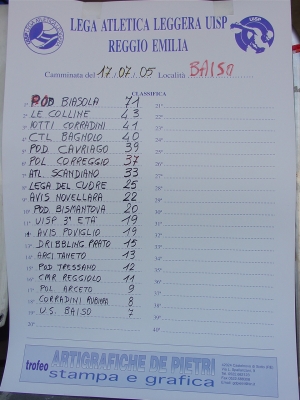 LEGA ATLETICA LEGGERA UISP
REGGIO EMILIA
UISP
Camminata del 17/07/05 Località BAISO
CLASSIFICA
1° POD BIASOLA 71
2° LE COLLINE 43
3° IOTTI CORRADINI 41
4° CTL BAGNOLO 40
5° POD. CAVRIAGO 39
6° POL CORREGGIO 37
7° ATL. SCANDIANO 33
8° LEGA DEL CUORE 25
9° AVIS NOVELLARA 22
10° POD. BISMANTOVA 20
11° UISP 3ª ETÀ 19
AVIS POVIGLIO 19
13° DRIBBLING PRATO 15
14° ARCI TANETO 13
15° POD TRESSANO 12
16° CMR REGGIOLO 11
17° POL ARCETO 9
18° CORRADINI RUBIERA 8
19° U.S. BAISO 7
20°
21°
22°
23°
24°
25°
26°
27°
28°
29°
30°
31°
32°
33°
34°
35°
36°
37°
38°
39°
40°
trofeo ARTIGRAFICHE DE PIETRI
stampa e grafica